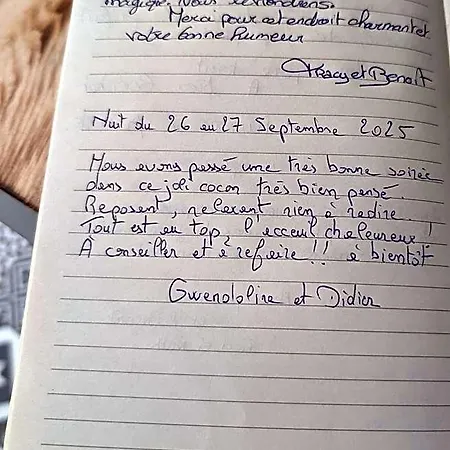 magique. Nous reviendrons.
Merci pour cet endroit charmant et
votre bonne humeur
Tracy et Benoît
Nuit du 26 au 27 Septembre 2025
Nous avons passé une très bonne soirée
dans ce joli cocon très bien pensé
Reposant, relaxant rien à redire.
Tout est au top, l'acceuil chaleureux !
À conseiller et à refaire !! à bientôt
Gwendoline et Didier